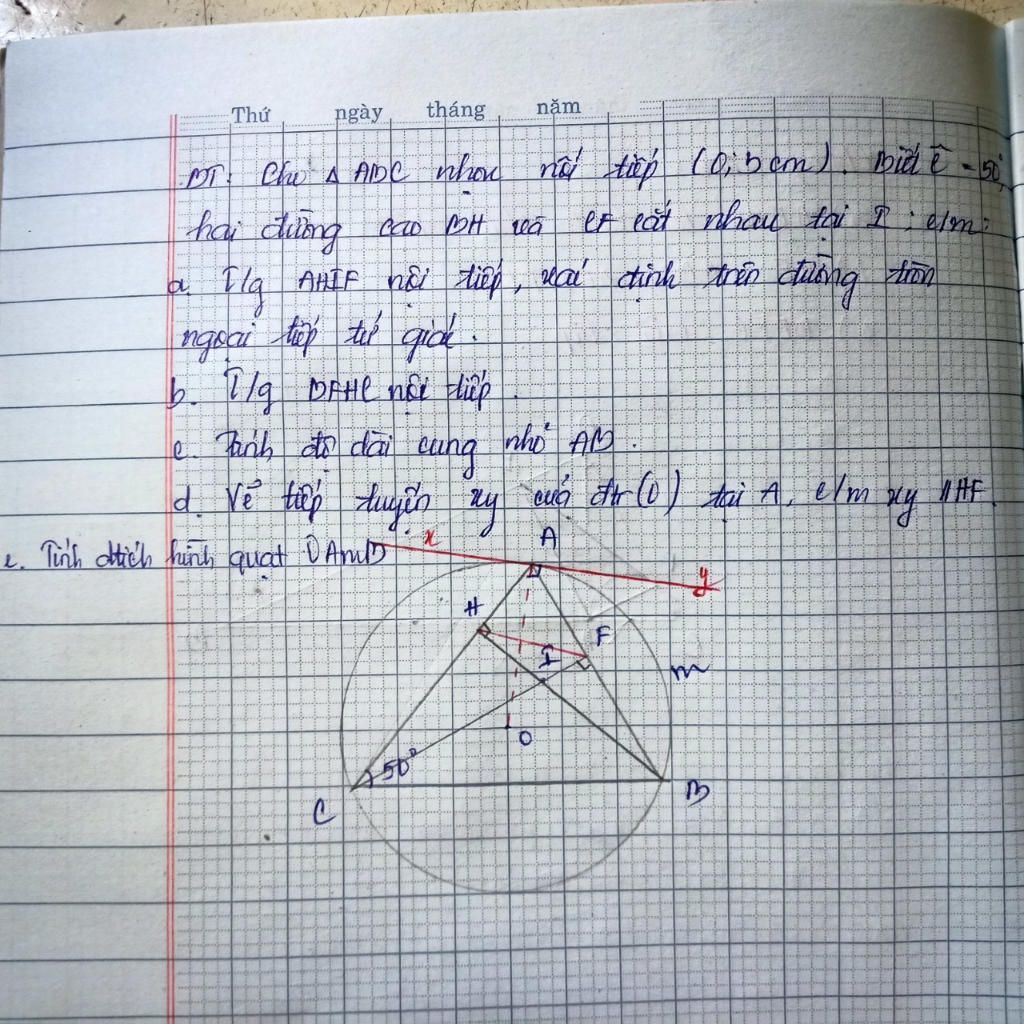 Thứ ngày tháng năm
BT: Cho Δ ABC nhọn nội tiếp (O; 3cm). Biết Ĉ = 50°,
hai đường cao BH và CF cắt nhau tại I; c/m:
a. T/g AHIF nội tiếp, xác định trên đường tròn
ngoại tiếp tứ giác.
b. T/g BFHC nội tiếp.
c. Tính độ dài cung nhỏ AB.
d. Vẽ tiếp tuyến xy của đtr (O) tại A, c/m xy // HF.
e. Tính dtích hình quạt OAmB
x A
y
H
F
I
m
O
50°
C B